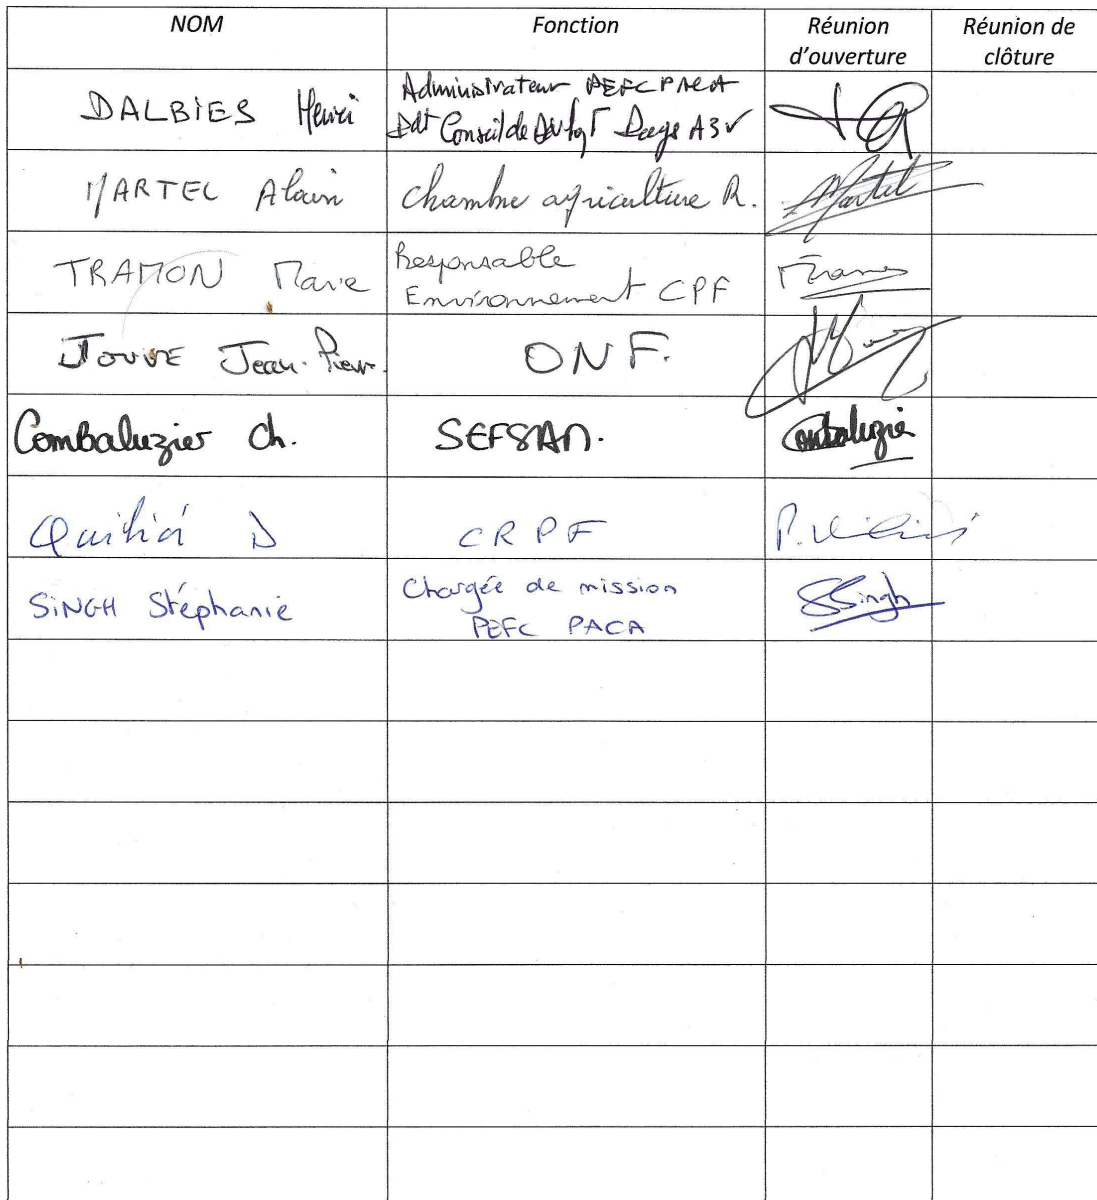 NOM Fonction Réunion d'ouverture Réunion de clôture
DALBIES Henri Administrateur PEFC PACA
Conseil de
MARTEL Alain Chambre agriculture R. Martel
TRAMON Marie Responsable
Environnement CPF
JOUVE Jean-Pierre ONF.
Combaluzier Ch. SEFSAM. Combaluzier
Quilici D CRPF
SiNGH Stéphanie Chargée de mission SSingh
PEFC PACA